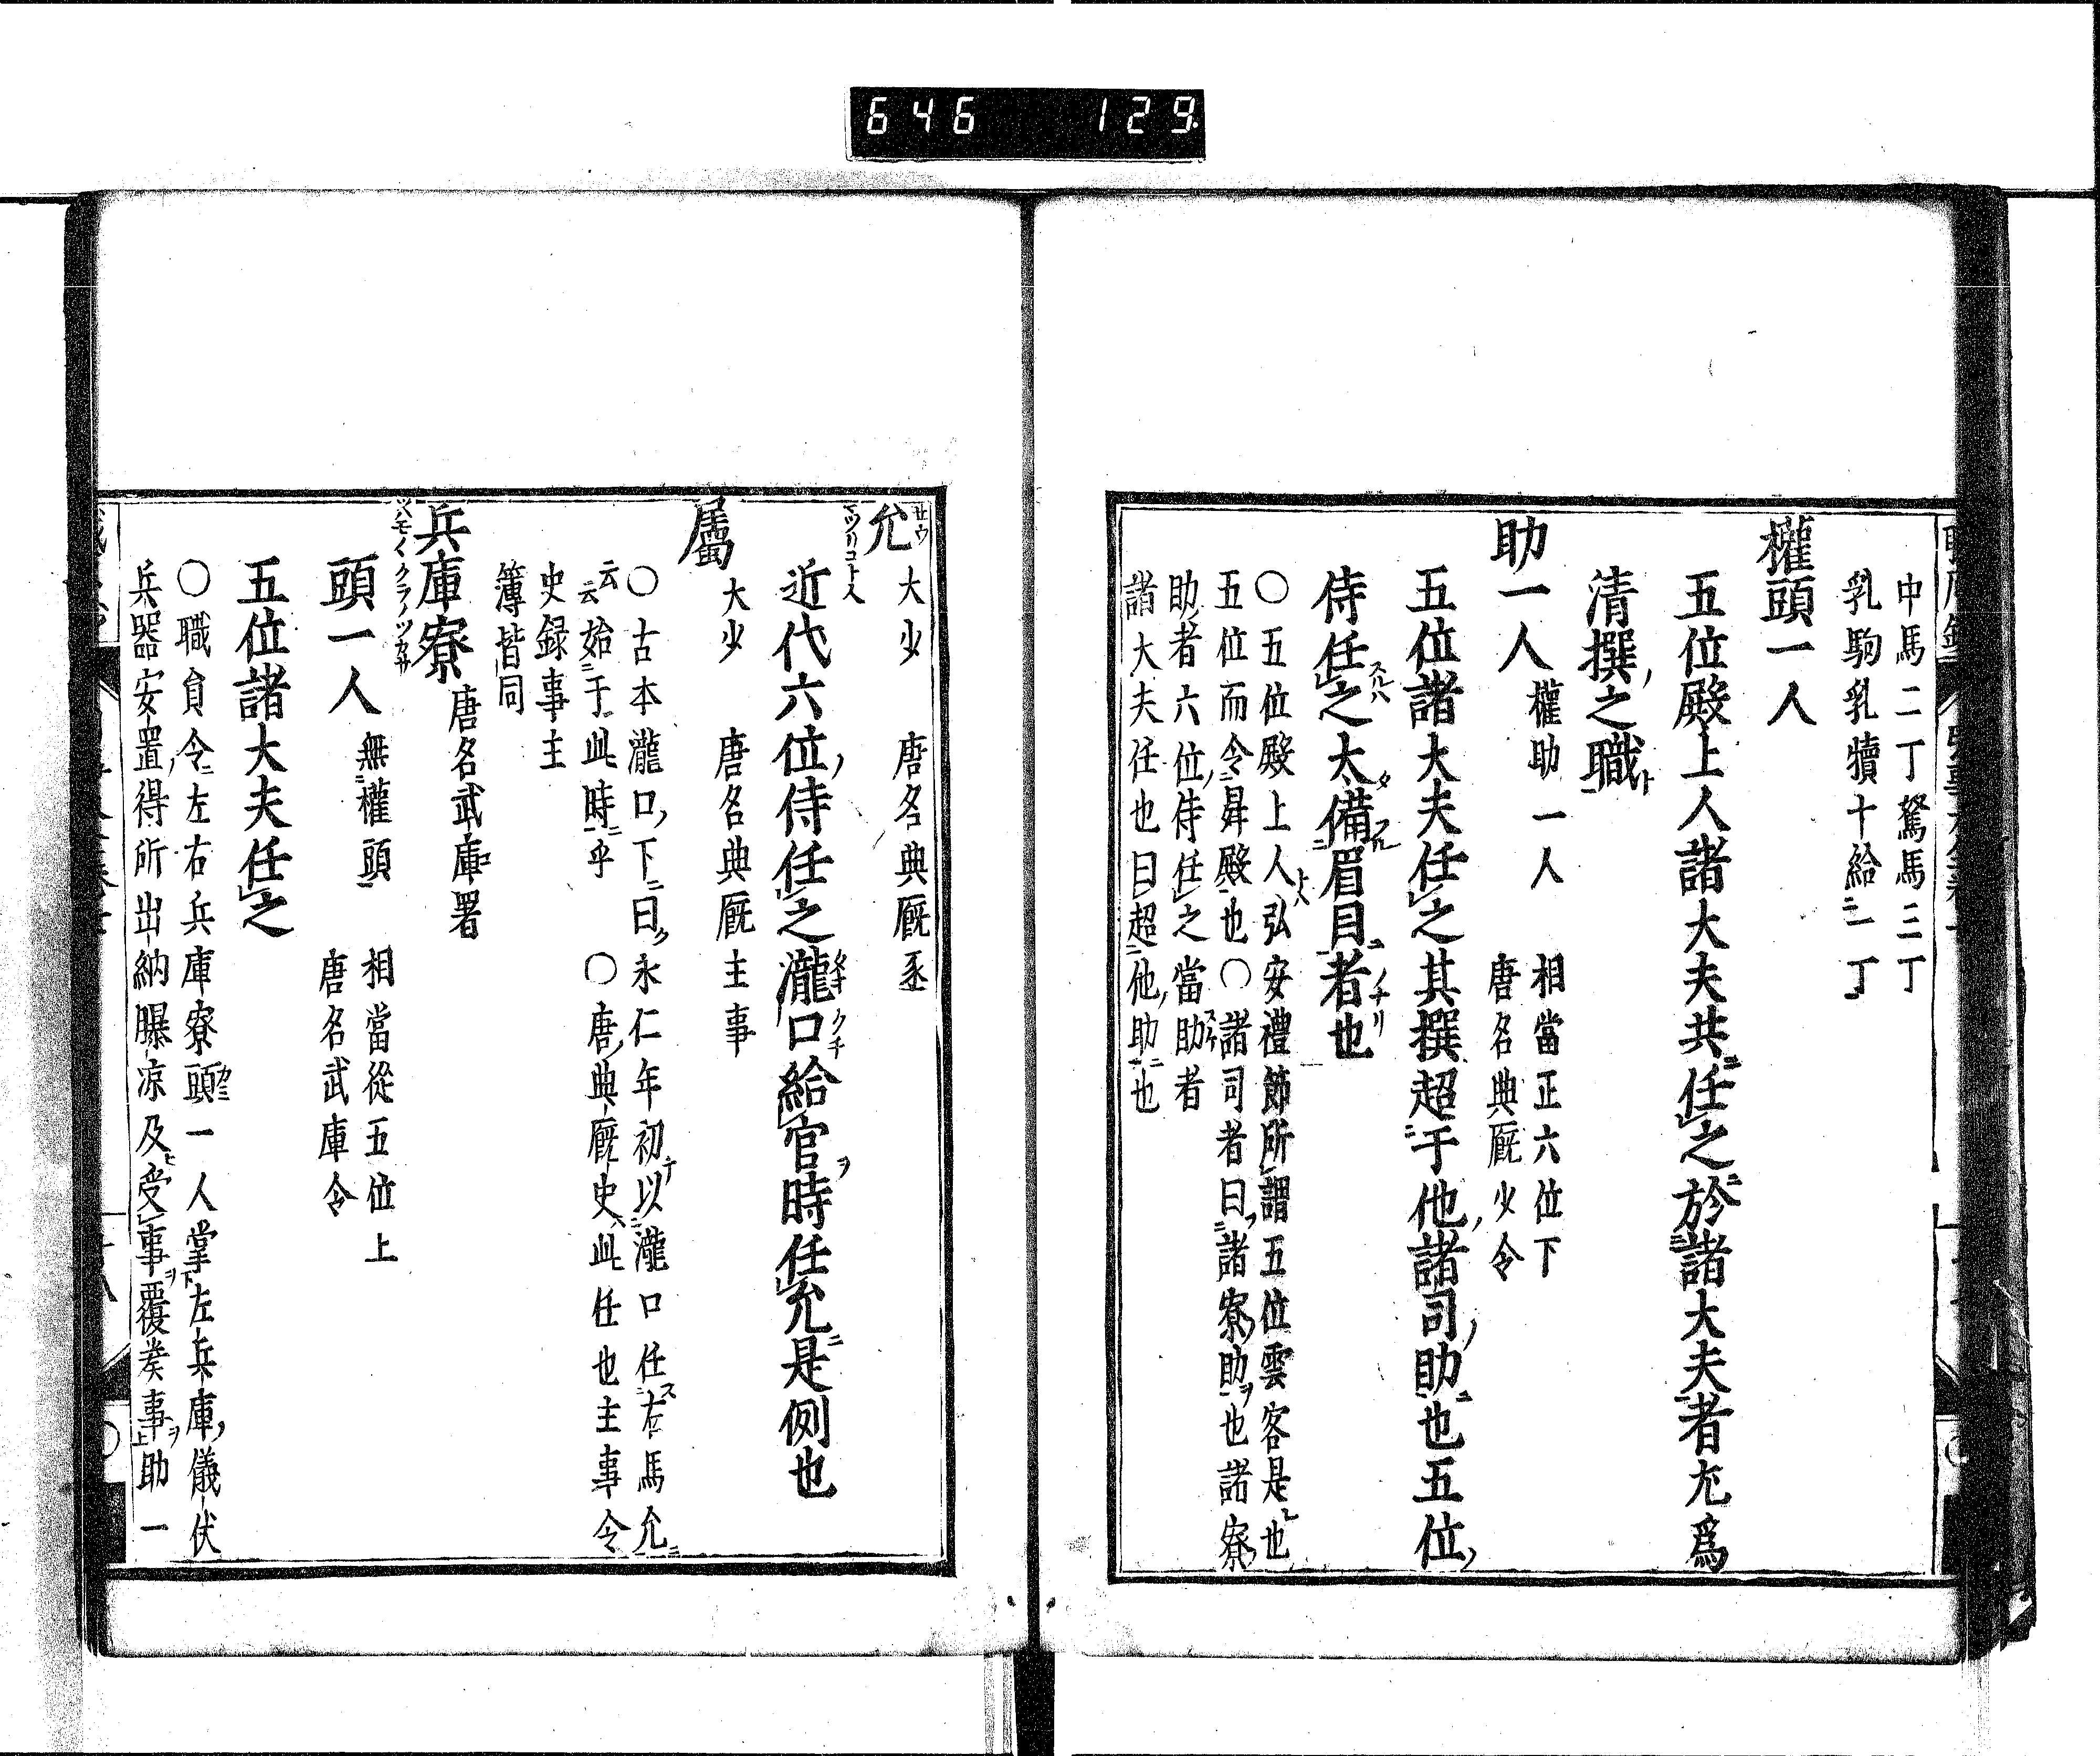 646 129
中馬二丁駑馬三丁
乳駒乳犢十給一丁
權頭一人
五位殿上人諸大夫共任之於諸大夫者尤爲
清撰之職
助一人 權助一人 相當正六位下
唐名典厩少令
五位諸大夫任之其撰超于他諸司助也五位
侍任之太備眉目者也
○五位殿上人弘安禮節所謂五位雲客是也
五位而令昇殿也○諸司者曰諸寮助也諸寮
助者六位侍任之當助者
諸大夫任也曰超他助也
允 大少 唐名典厩丞
近代六位侍任之瀧口給官時任允是例也
屬 大少 唐名典厩主事
○古本瀧口下曰永仁年初以瀧口任右馬允
云云始于此時乎 ○唐典厩史此任也主事令
史録事主
簿皆同
兵庫寮 唐名武庫署
ツハモノクラノツカサ
頭一人 無權頭 相當從五位上
唐名武庫令
五位諸大夫任之
○職員令左右兵庫寮頭一人掌左兵庫儀仗
兵器安置得所出納曝凉及受事覆奏事助一